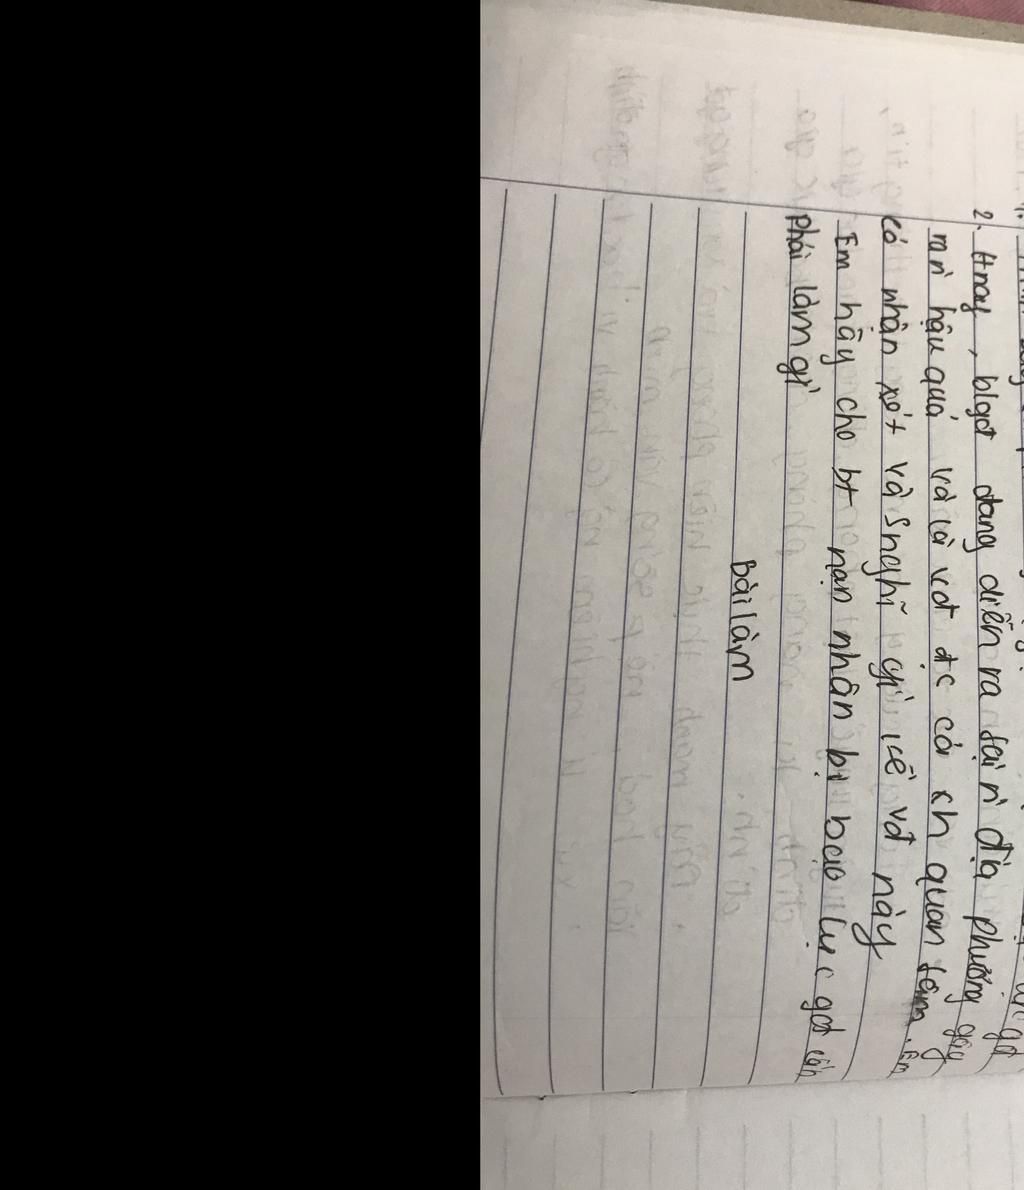 2. Hnay, blgđ đang diễn ra tại n` địa phương gây
ra n` hậu quả và là vđ đc cả xh quan tâm. Em
có nhận xét và s nghĩ gì về vđ này
Em hãy cho bt nạn nhân bị bạo lực gđ cần
phải làm gì
Bài làm